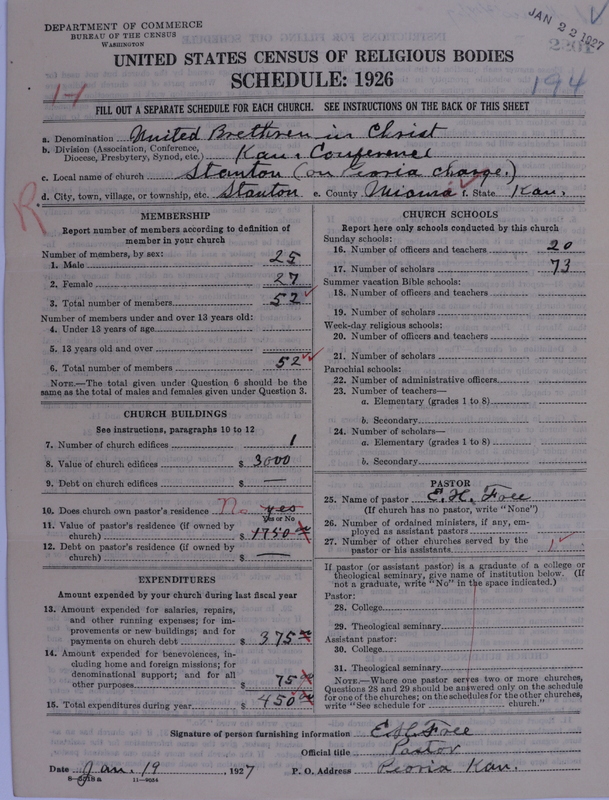 DEPARTMENT OF COMMERCE
BUREAU OF THE CENSUS
WASHINGTON
JAN 22 1927
UNITED STATES CENSUS OF RELIGIOUS BODIES
SCHEDULE: 1926
194
FILL OUT A SEPARATE SCHEDULE FOR EACH CHURCH. SEE INSTRUCTIONS ON THE BACK OF THIS SHEET
a. Denomination United Brethren in Christ
b. Division (Association, Conference, Diocese, Presbytery, Synod, etc.) Kan. Conference
c. Local name of church Stanton (on Peoria charge.)
d. City, town, village, or township, etc. Stanton e. County Miami f. State Kan.
R
MEMBERSHIP
Report number of members according to definition of member in your church
Number of members, by sex:
1. Male 25
2. Female 27
3. Total number of members 52
Number of members under and over 13 years old:
4. Under 13 years of age
5. 13 years old and over
6. Total number of members 52
NOTE.—The total given under Question 6 should be the same as the total of males and females given under Question 3.
CHURCH BUILDINGS
See instructions, paragraphs 10 to 12
7. Number of church edifices 1
8. Value of church edifices $ 3000
9. Debt on church edifices $ —
10. Does church own pastor's residence No yes
Yes or No
11. Value of pastor's residence (if owned by church) $ 1750
12. Debt on pastor's residence (if owned by church) $ —
EXPENDITURES
Amount expended by your church during last fiscal year
13. Amount expended for salaries, repairs, and other running expenses; for improvements or new buildings; and for payments on church debt $ 375
14. Amount expended for benevolences, including home and foreign missions; for denominational support; and for all other purposes $ 75
15. Total expenditures during year $ 450
CHURCH SCHOOLS
Report here only schools conducted by this church
Sunday schools:
16. Number of officers and teachers 20
17. Number of scholars 73
Summer vacation Bible schools:
18. Number of officers and teachers
19. Number of scholars
Week-day religious schools:
20. Number of officers and teachers
21. Number of scholars
Parochial schools:
22. Number of administrative officers
23. Number of teachers—
a. Elementary (grades 1 to 8)
b. Secondary
24. Number of scholars—
a. Elementary (grades 1 to 8)
b. Secondary
PASTOR
25. Name of pastor E. H. Free
(If church has no pastor, write "None")
26. Number of ordained ministers, if any, employed as assistant pastors
27. Number of other churches served by the pastor or his assistants 1
If pastor (or assistant pastor) is a graduate of a college or theological seminary, give name of institution below. (If not a graduate, write "No" in the space indicated.)
Pastor:
28. College
29. Theological seminary
Assistant pastor:
30. College
31. Theological seminary
NOTE.—Where one pastor serves two or more churches, Questions 28 and 29 should be answered only on the schedule for one of the churches; on the schedules for the other churches, write "See schedule for church."
Signature of person furnishing information E. H. Free
Official title Pastor
Date Jan. 19, 1927 P. O. Address Peoria Kan.
11—9054